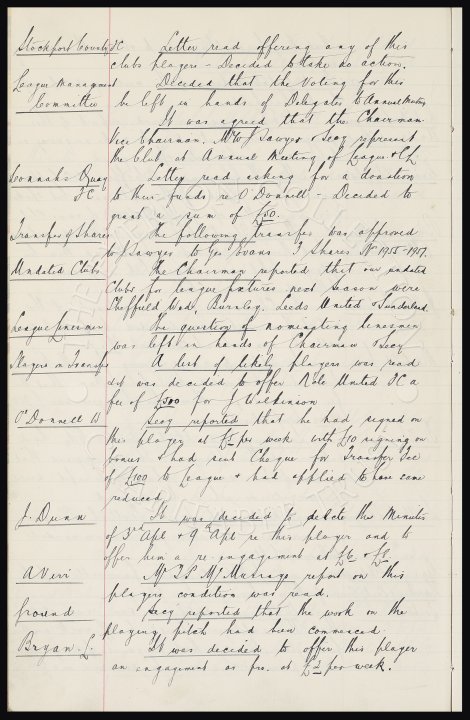 Stockport County FC Letter read offering any of this
clubs players - Decided to take no action.
League Management Decided that the Voting for this
Committee be left in hands of Delegates to Annual Meeting
It was agreed that the Chairman
Vice Chairman, Mr W J Sawyer & Secy represent
the Club at Annual Meeting of League &
Connahs Quay Letter read asking for a donation
FC to their funds re O'Donnell - Decided to
grant a sum of £50.
Transfer of Shares The following transfer was approved
W J Sawyer to Geo Evans 3 Shares No 1955-1957.
Undated Clubs The Chairman reported that our undated
Clubs for league fixtures next season were
Sheffield Wed, Burnley, Leeds United & Sunderland.
League Linesmen The question of nominating linesmen
was left in hands of Chairman & Secy
Players on Transfer A list of likely players was read
& it was decided to offer United FC a
fee of £500 for J Wilkinson
O'Donnell W Secy reported that he had signed on
this player at £5 per week with £10 signing on
bonus & had sent Cheque for Transfer Fee
of £100 to League & had applied to have same
reduced.
J. Dunn It was decided to delete the Minutes
of 3rd Apl & 9th Apl re this player and to
offer him a re-engagement at £6 & £8.
A Veri Mr T S McMurray report on this
players condition was read.
Ground Secy reported that the work on the
playing pitch had been commenced
Bryan. L. It was decided to offer this player
an engagement as pro. at £2 per week.